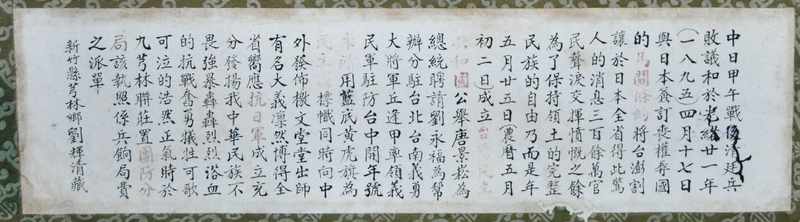 中日甲午戰後清廷兵
敗議和於光緒廿一年
(一八九五)四月十七日
與日本簽訂喪權辱國
的馬關條約將台澎割
讓於日本全省得此驚
人的消息三百餘萬官
民聲淚交揮憤慨之餘
為了保持領土的完整
民族的自由乃而是年
五月廿五日(農曆五月
初二日)成立台 民主
共和國公舉唐景崧為
總統聘請劉永福為幫
辦分駐台北台南義勇
大將軍丘逢甲率領義
民軍駐防台中開年號
用藍底黃虎旗為
標幟同時向中
外發佈檄文堂堂出師
有名大義凜然博得全
省嚮應抗日軍成立充
分發揚我中華民族不
畏強暴轟轟烈烈浴血
的抗戰奮勇犧牲可歌
可泣的浩然正氣時於
九芎林聯莊置團防分
局該執照係兵餉局費
之派單
新竹縣芎林鄉劉輝清藏